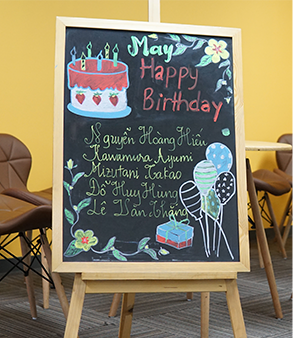 May
Happy
Birthday
Nguyễn Hoàng Hiếu
Kawamura Ayumi
Mizutani Takao
Đỗ Huy Hùng
Lê Văn Thắng